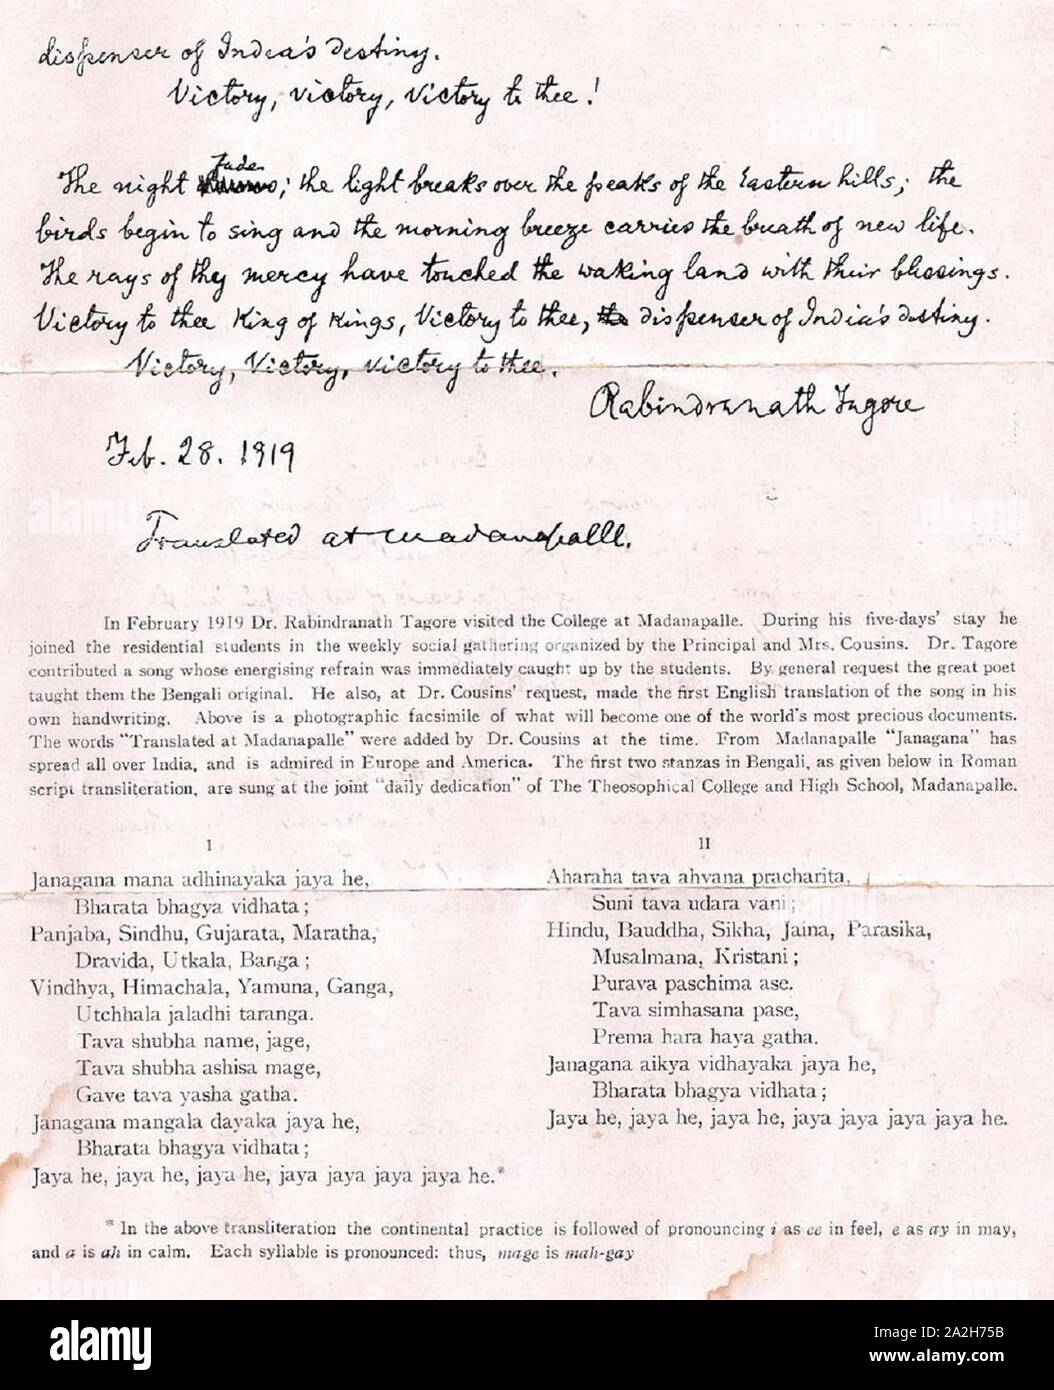 dispenser of India's destiny.
Victory, victory, victory to thee!
Fades
The night ; the light breaks over the peaks of the Eastern hills; the
birds begin to sing and the morning breeze carries the breath of new life.
The rays of thy mercy have touched the waking land with their blessings.
Victory to thee King of Kings, Victory to thee, the dispenser of India's destiny.
Victory, Victory, victory to thee.
Rabindranath Tagore
Feb. 28. 1919
Translated at Madanapalle.
In February 1919 Dr. Rabindranath Tagore visited the College at Madanapalle. During his five-days' stay he
joined the residential students in the weekly social gathering organized by the Principal and Mrs. Cousins. Dr. Tagore
contributed a song whose energising refrain was immediately caught up by the students. By general request the great poet
taught them the Bengali original. He also, at Dr. Cousins' request, made the first English translation of the song in his
own handwriting. Above is a photographic facsimile of what will become one of the world's most precious documents.
The words "Translated at Madanapalle" were added by Dr. Cousins at the time. From Madanapalle "Janagana" has
spread all over India, and is admired in Europe and America. The first two stanzas in Bengali, as given below in Roman
script transliteration, are sung at the joint "daily dedication" of The Theosophical College and High School, Madanapalle.
I
Janagana mana adhinayaka jaya he,
Bharata bhagya vidhata;
Panjaba, Sindhu, Gujarata, Maratha,
Dravida, Utkala, Banga;
Vindhya, Himachala, Yamuna, Ganga,
Utchhala jaladhi taranga.
Tava shubha name, jage,
Tava shubha ashisa mage,
Gave tava yasha gatha.
Janagana mangala dayaka jaya he,
Bharata bhagya vidhata;
Jaya he, jaya he, jaya he, jaya jaya jaya jaya he.*
II
Aharaha tava ahvana pracharita,
Suni tava udara vani;
Hindu, Bauddha, Sikha, Jaina, Parasika,
Musalmana, Kristani;
Purava paschima ase.
Tava simhasana pase,
Prema hara haya gatha.
Janagana aikya vidhayaka jaya he,
Bharata bhagya vidhata;
Jaya he, jaya he, jaya he, jaya jaya jaya jaya he.
* In the above transliteration the continental practice is followed of pronouncing i as ee in feel, e as ay in may,
and a is ah in calm. Each syllable is pronounced: thus, mage is mah-gay
alamy
Image ID: 2A2H75B
www.alamy.com